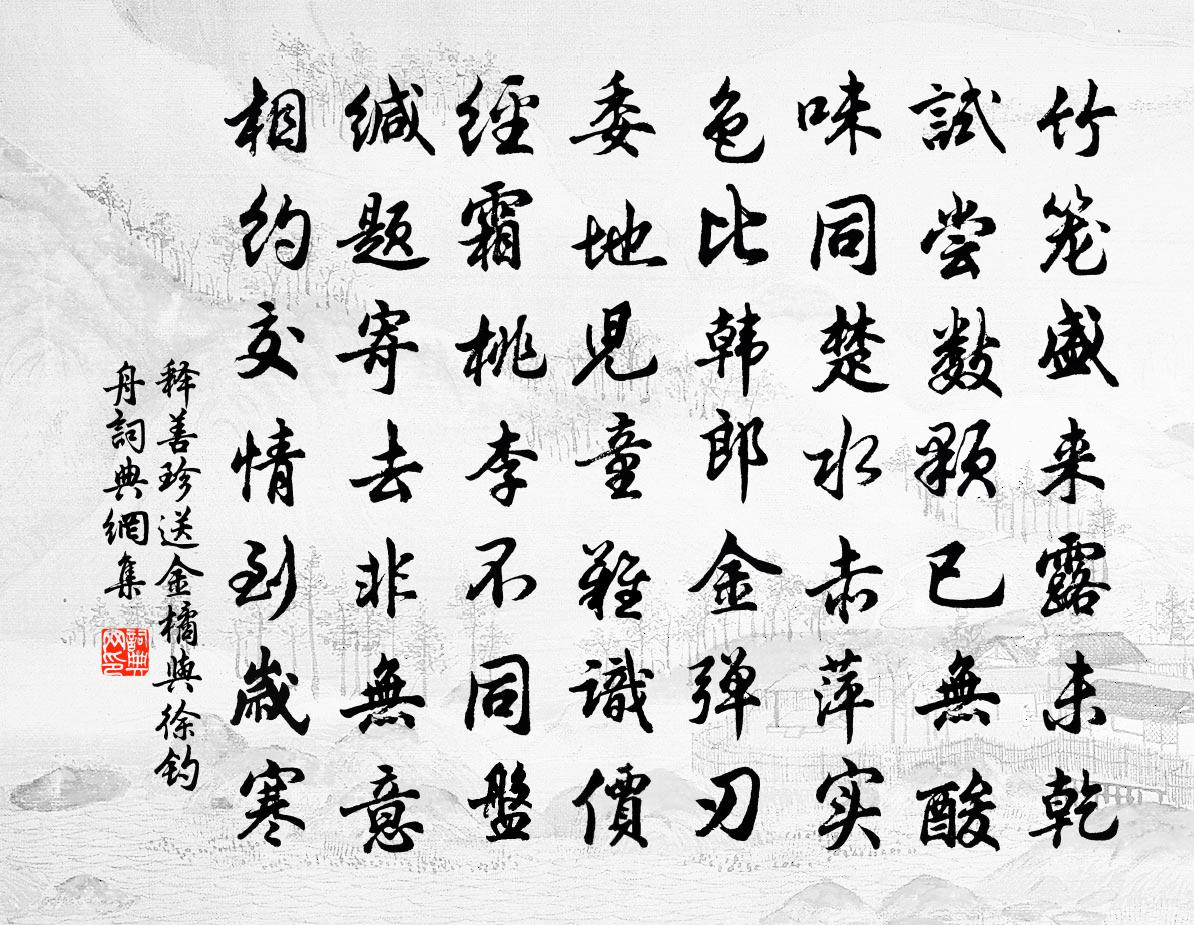 竹笼盛来露未乾
試尝数颗已無酸
味同楚水赤萍实
色比韩郎金弹丸
委地児童難識價
經霜桃李不同盤
缄题寄去非無意
相约交情到歳寒
释善珍送金橘與徐钓
舟詞典網集
詞典网印